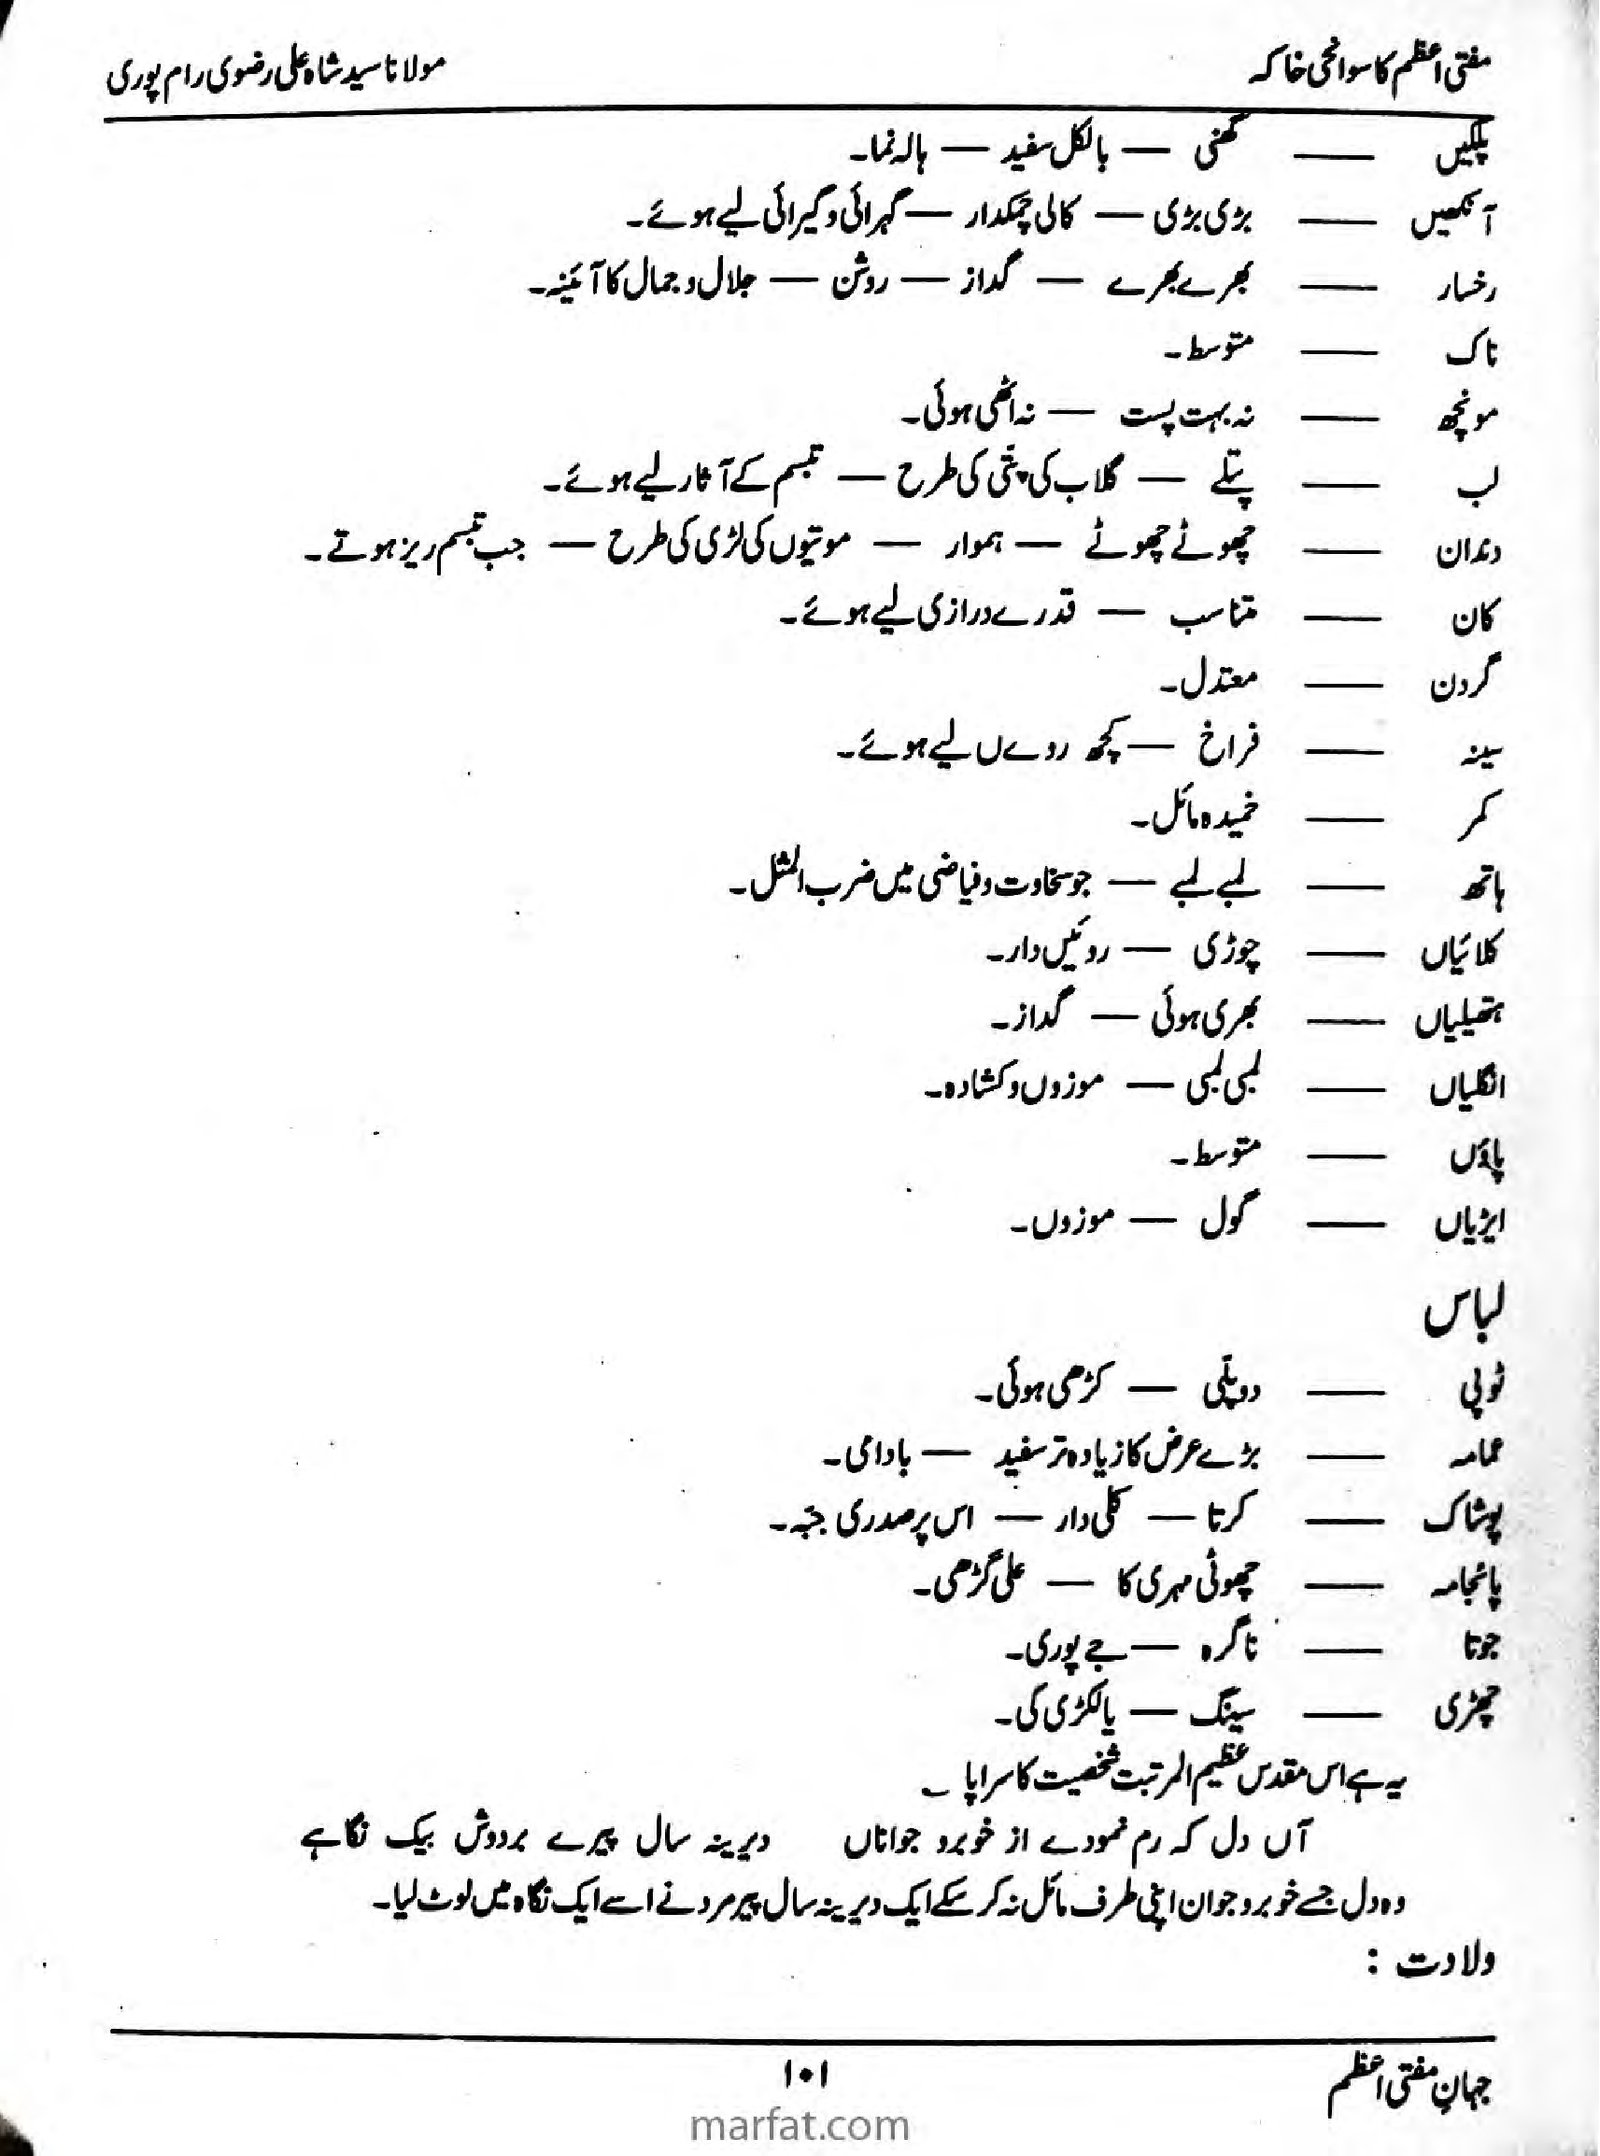 مفتی اعظم کا سوانحی خاکہ مولانا سید شاہ علی رضوی رام پوری
پلکیں —— گھنی — بالکل سفید — ہالہ نما۔
آنکھیں —— بڑی بڑی — کالی چمکدار — گہرائی و گیرائی لیے ہوئے۔
رخسار —— بھرے بھرے — گداز — روشن — جلال و جمال کا آئینہ۔
ناک —— متوسط۔
مونچھ —— نہ بہت پست — نہ اٹھی ہوئی۔
لب —— پتلے — گلاب کی پتی کی طرح — تبسم کے آثار لیے ہوئے۔
دندان —— چھوٹے چھوٹے — ہموار — موتیوں کی لڑی کی طرح — جب تبسم ریز ہوتے۔
کان —— متناسب — قدرے درازی لیے ہوئے۔
گردن —— معتدل۔
سینہ —— فراخ — کچھ روےں لیے ہوئے۔
کمر —— خمیدہ مائل۔
ہاتھ —— لمبے لمبے — جو سخاوت و فیاضی میں ضرب المثل۔
کلائیاں —— چوڑی — روئیں دار۔
ہتھیلیاں —— بھری ہوئی — گداز۔
انگلیاں —— لمبی لمبی — موزوں و کشادہ۔
پاؤں —— متوسط۔
ایڑیاں —— گول — موزوں۔
لباس
ٹوپی —— دوپلی — کڑھی ہوئی۔
عمامہ —— بڑے عرض کا زیادہ تر سفید — بادامی۔
پوشاک —— کرتا — کلی دار — اس پر صدری جبّہ۔
پائجامہ —— چھوٹی مہری کا — علی گڑھی۔
جوتا —— ناگرہ — جے پوری۔
چھڑی —— سینگ — یا لکڑی کی۔
یہ ہے اس مقدس عظیم المرتبت شخصیت کا سراپا ؎
آں دل کہ رم نمودے از خوبرو جواناں دیرینہ سال پیرے بردوش بیک نگاہے
وہ دل جسے خوبرو جوان اپنی طرف مائل نہ کر سکے ایک دیرینہ سال پیر مرد نے اسے ایک نگاہ میں لوٹ لیا۔
ولادت :
جہانِ مفتی اعظم ۱۰۱
marfat.com